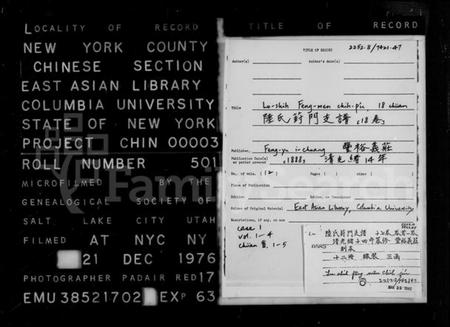 LOCALITY OF RECORD
NEW YORK COUNTY
CHINESE SECTION
EAST ASIAN LIBRARY
COLUMBIA UNIVERSITY
STATE OF NEW YORK
PROJECT CHIN 00003
ROLL NUMBER 501
MICROFILMED BY THE
GENEALOGICAL SOCIETY OF
SALT LAKE CITY UTAH
FILMED AT NYC NY
21 DEC 1976
PHOTOGRAPHER PADAIR RED 17
EMU 38521702 EXP 63
TITLE OF RECORD
TITLE OF RECORD
2252.8/7421.47
Author(s)
Author's dates(s)
Title Lu-shih Feng-men chih-p'u, 18 chüan
陸氏葑門支譜, 18卷
Publisher Feng-yü i-chuang 豐裕義莊
Publication Date(s) or period covered 1888, 清光緒14年
No. of vols. (12)
Place of Publication
Edition
Editor of Original Material East Asian Library, Columbia University
Case 1
vol. 1-4
1-5
陸氏葑門支譜
清光緒十四年
豐裕義莊
刻本
十二冊 線裝 二函
Lu shih feng men chih p'u